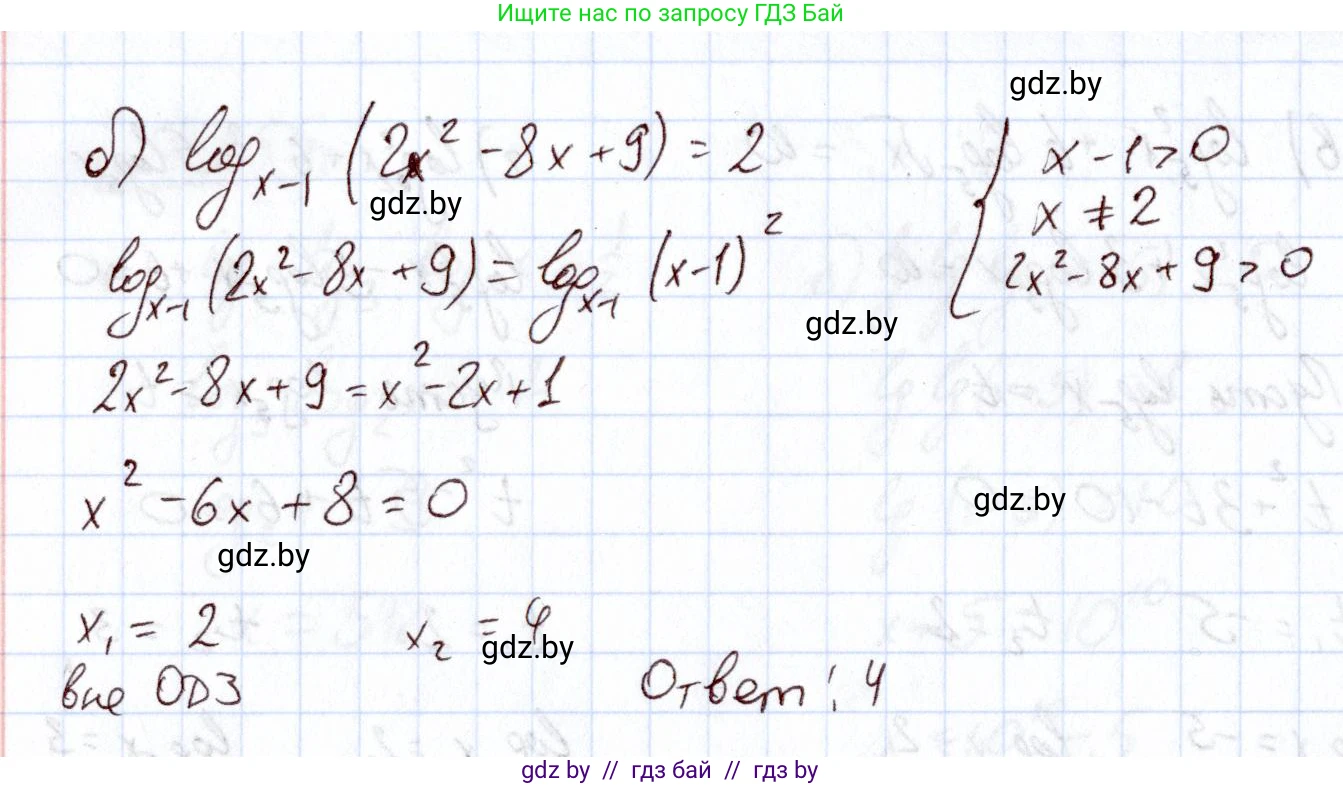 Ищите нас по запросу ГДЗ Бай
gdz.by
б) log_{x-1} (2x² - 8x + 9) = 2
{ x - 1 > 0
x ≠ 2
2x² - 8x + 9 > 0
gdz.by
log_{x-1} (2x² - 8x + 9) = log_{x-1} (x-1)²
gdz.by
2x² - 8x + 9 = x² - 2x + 1
x² - 6x + 8 = 0
gdz.by
gdz.by
x₁ = 2
x₂ = 4
gdz.by
вне ОДЗ
Ответ: 4
gdz by // гдз бай // гдз by